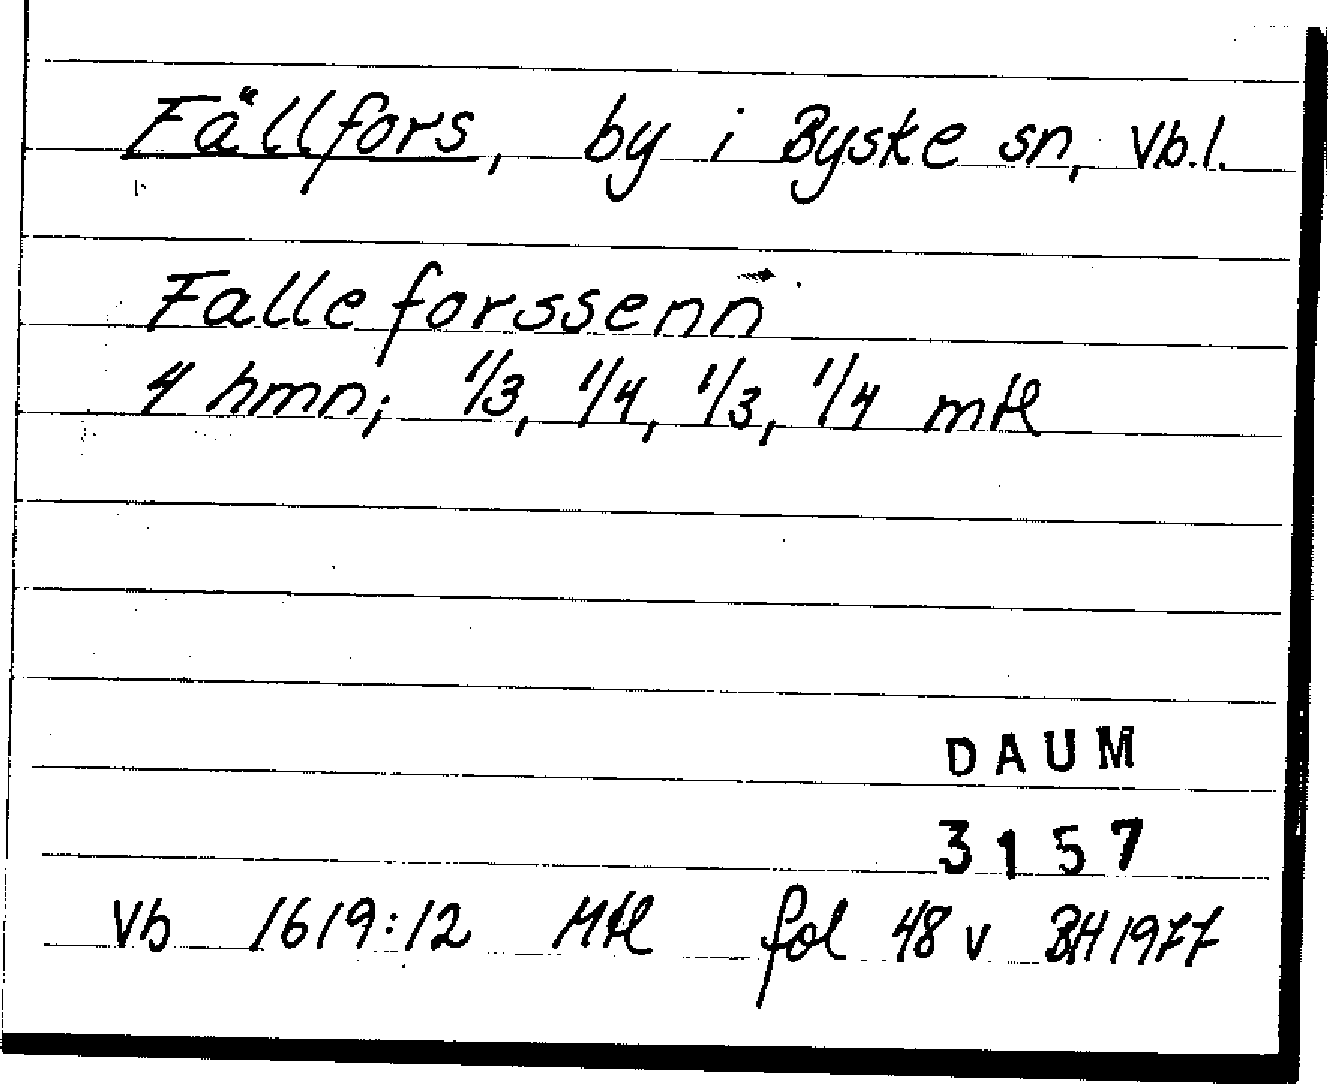 Fällfors, by i Byske sn, Vb.l.
Falleforssenn̄
4 hmn; 1/3, 1/4, 1/3, 1/4 mtl
DAUM
3157
Vb 1619:12 Mtl fol 48 v BH 1977